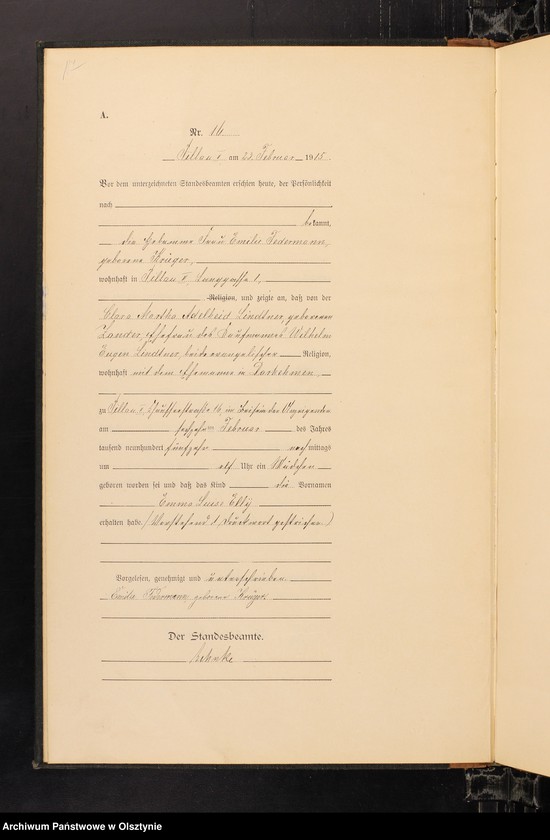 A.
Nr. 16
Pillau I am 22 Februar 1915.
Vor dem unterzeichneten Standesbeamten erschien heute, der Persönlichkeit
nach
bekannt,
die Hebamme Frau Emilie Federmann,
geborene Krüger,
wohnhaft in Pillau I, Langgasse 1,
Religion, und zeigte an, daß von der
Clara Martha Adelheid Lindtner, geborenen
Zander, Ehefrau des Kaufmannes Wilhelm
Eugen Lindtner, beide evangelischer Religion,
wohnhaft mit dem Ehemanne in Darkehmen,
zu Pillau I, 16, im Beisein der Anzeigenden
am Februar des Jahres
tausend neunhundert fünfzehn nachmittags
um elf Uhr ein Mädchen
geboren worden sei und daß das Kind die Vornamen
Emma Luise Elly
erhalten habe. (Vorstehend 1 Druckwort gestrichen)
Vorgelesen, genehmigt und unterschrieben
Emilie Federmann geborene Krüger
Der Standesbeamte.
Archiwum Państwowe w Olsztynie